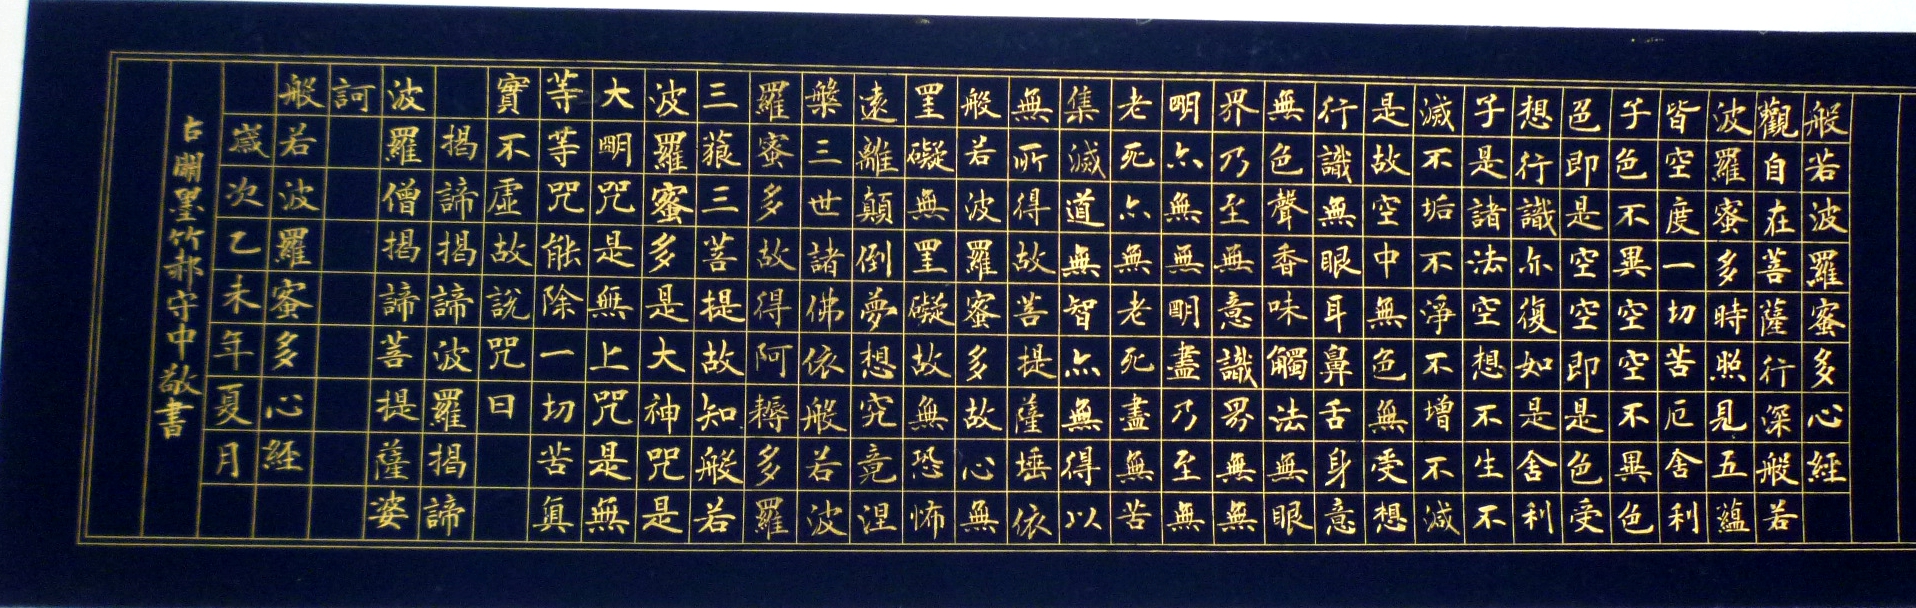 般若波羅蜜多心經
觀自在菩薩行深般若
波羅蜜多時照見五蘊
皆空度一切苦厄舍利
子色不異空空不異色
色即是空空即是色受
想行識亦復如是舍利
子是諸法空想不生不
滅不垢不淨不增不減
是故空中無色無受想
行識無眼耳鼻舌身意
無色聲香味觸法無眼
界乃至無意識界無無
明亦無無明盡乃至無
老死亦無老死盡無苦
集滅道無智亦無得以
無所得故菩提薩埵依
般若波羅蜜多故心無
罣礙無罣礙故無恐怖
遠離顛倒夢想究竟涅
槃三世諸佛依般若波
羅蜜多故得阿耨多羅
三藐三菩提故知般若
波羅蜜多是大神咒是
大明咒是無上咒是無
等等咒能除一切苦真
實不虛故說咒曰
揭諦揭諦波羅揭諦
波羅僧揭諦菩提薩婆
訶
般若波羅蜜多心經
歲次乙未年夏月
古閒墨竹郝守中敬書